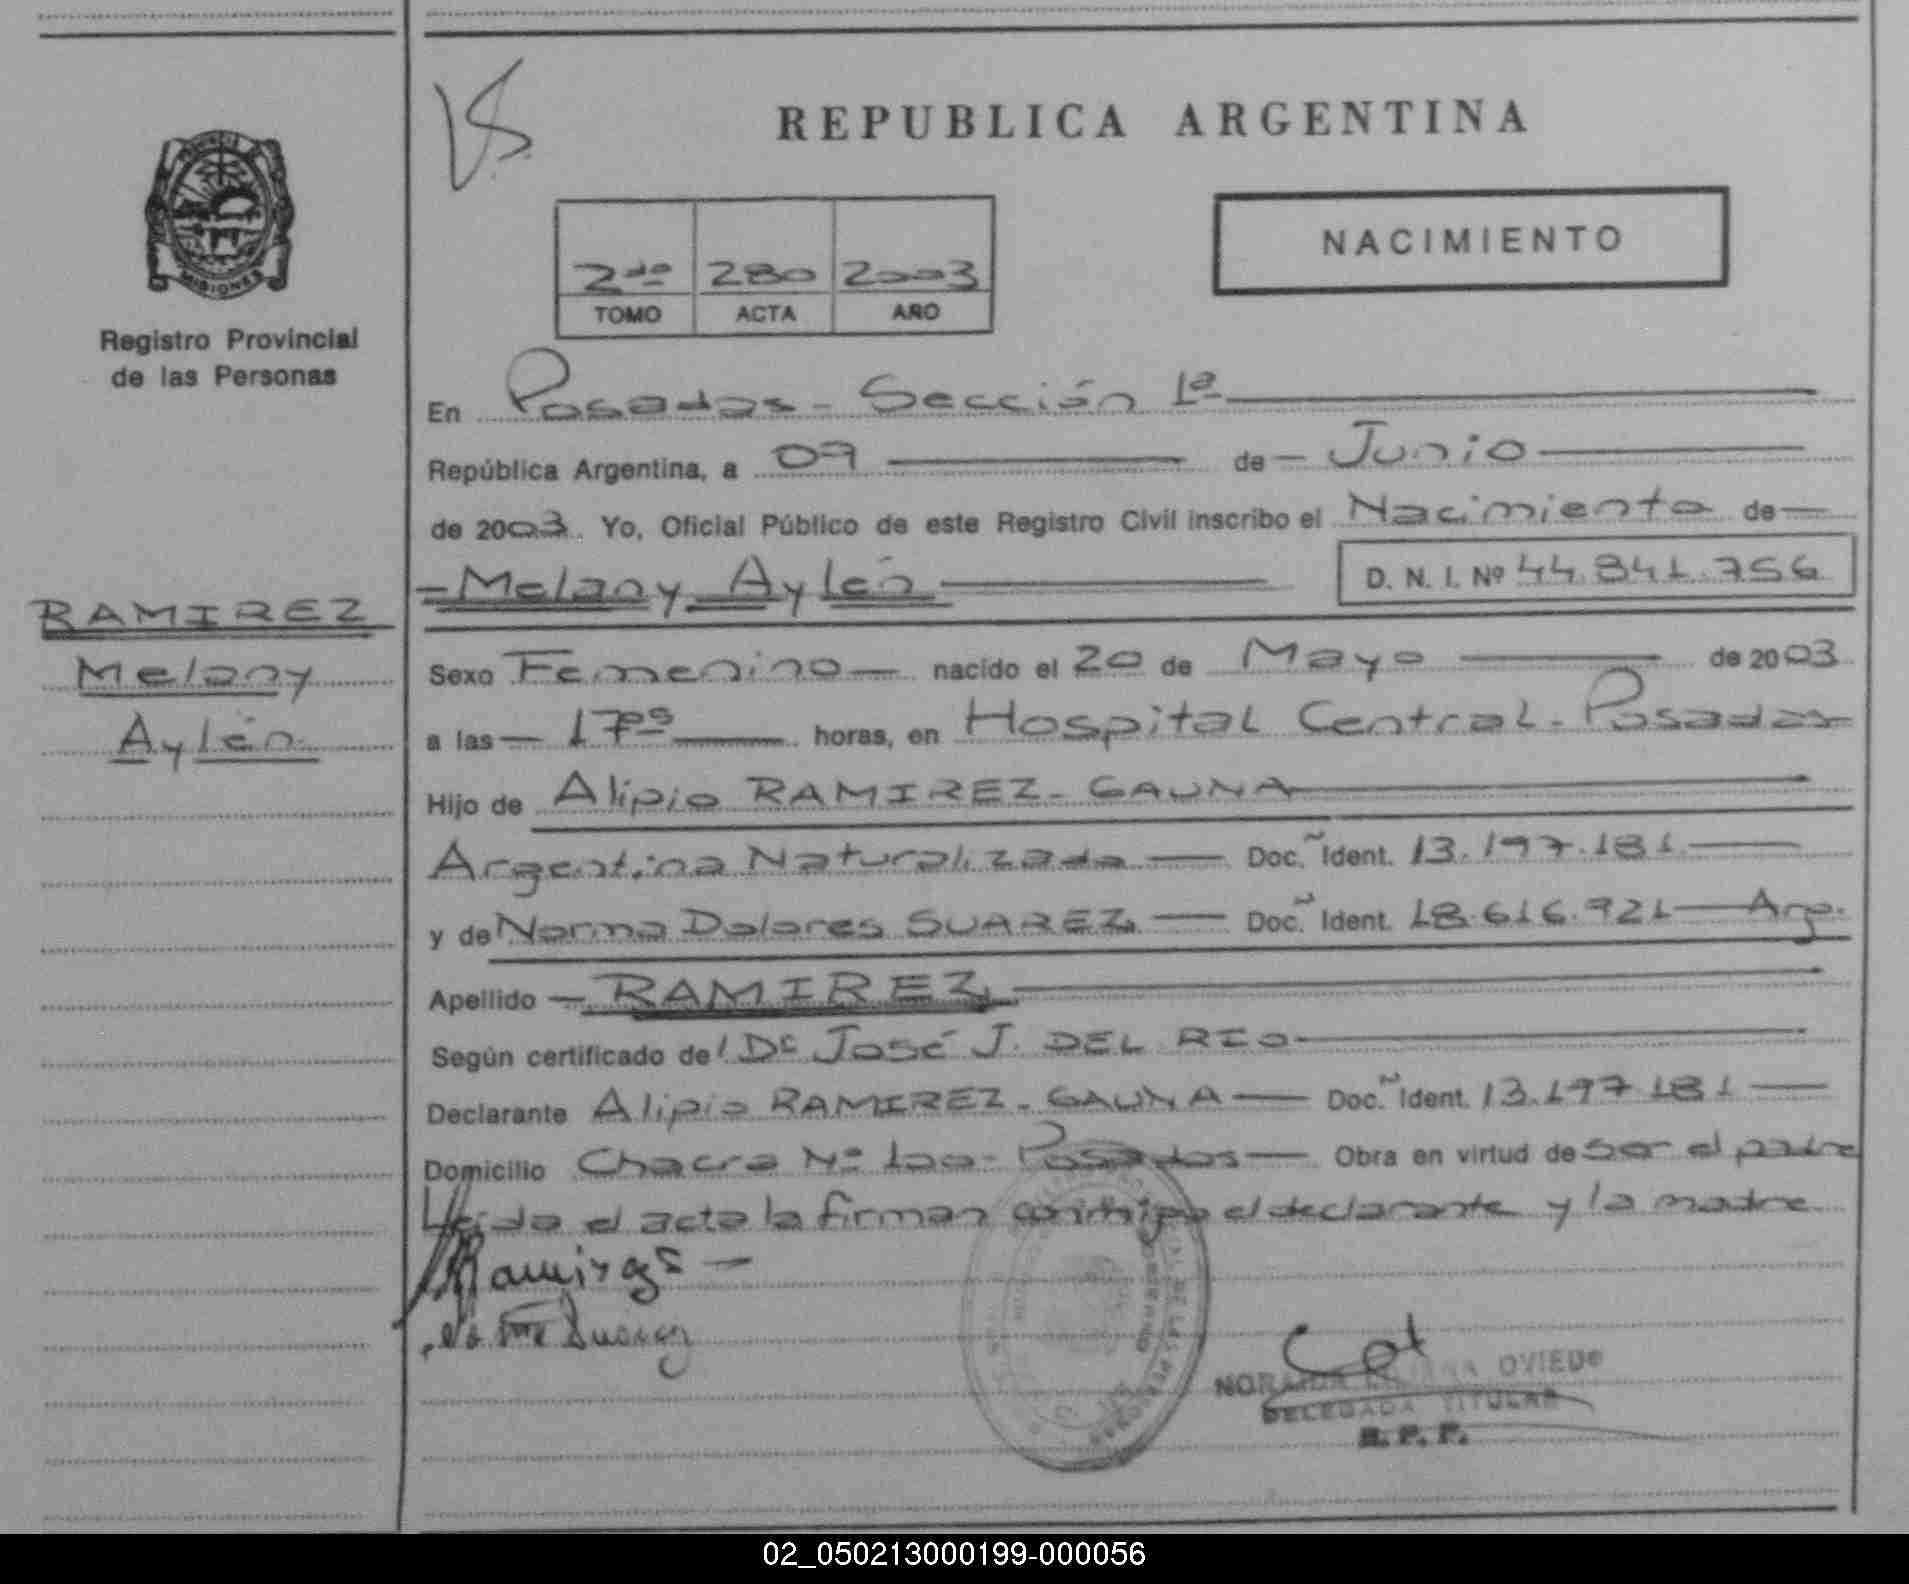 REPUBLICA ARGENTINA
NACIMIENTO
2do 280 2003
TOMO ACTA AÑO
MISIONES
Registro Provincial
de las Personas
RAMIREZ
Melany
Aylén
En Posadas - Sección 1ª
República Argentina, a 09 de Junio
de 2003. Yo, Oficial Público de este Registro Civil inscribo el Nacimiento de
Melany Aylén D. N. I. Nº 44.841.756
Sexo Femenino nacido el 20 de Mayo de 2003
a las 17 horas, en Hospital Central - Posadas
Hijo de Alipio RAMIREZ - GAUNA
Argentina Naturalizada Doc. Ident. 13.197.181
y de Norma Dolores SUAREZ Doc. Ident. 18.616.921 Arg.
Apellido RAMIREZ
Según certificado de Dr José J. DEL RIO
Declarante Alipio RAMIREZ - GAUNA Doc. Ident. 13.197.181
Domicilio Chacra Nº 100 - Posadas Obra en virtud de ser el padre
Leida el acta la firman conmigo el declarante y la madre
OVIEDO
DELEGADA TITULAR
R. P. P.
02_050213000199-000056